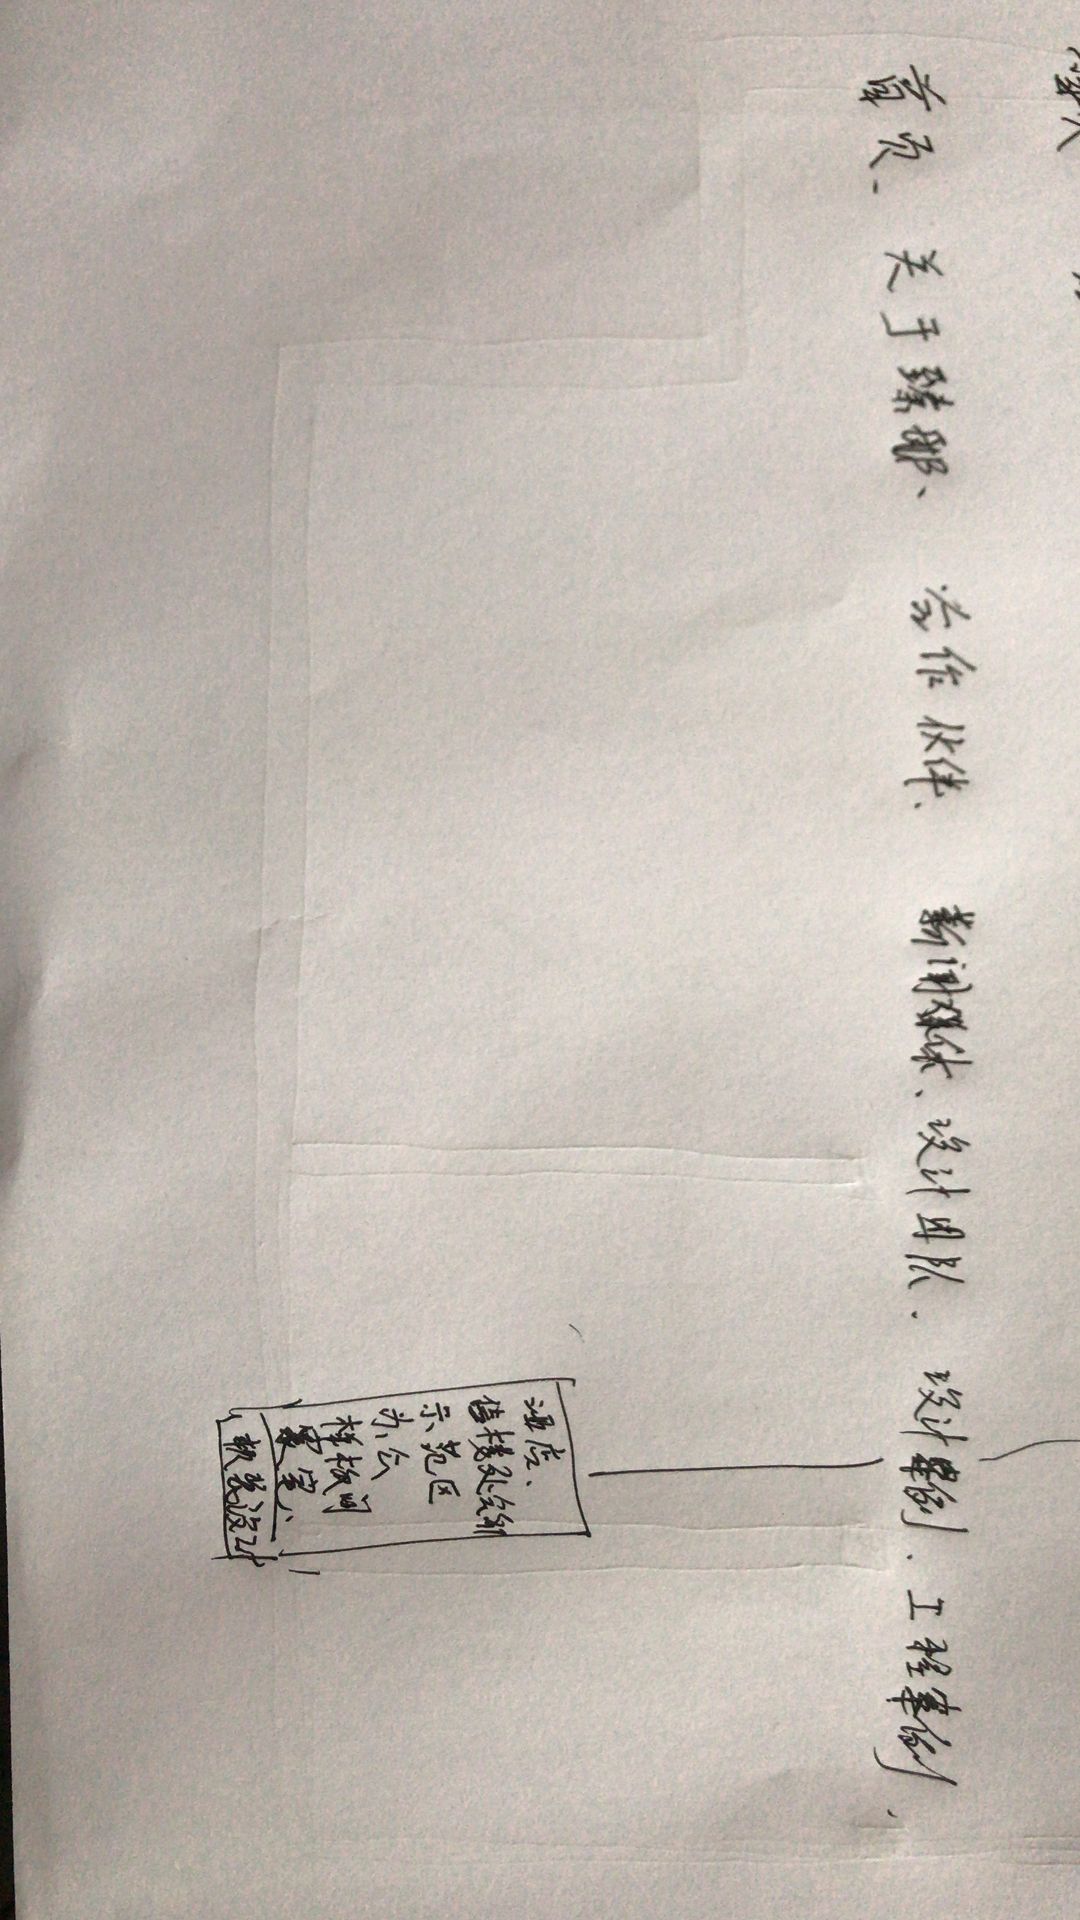 首页、关于臻那、 合作伙伴、 新闻媒体、设计团队、 设计案例、工程案例、
酒店、
售楼处会所
示范区
办公
样板间
豪宅、
软装设计